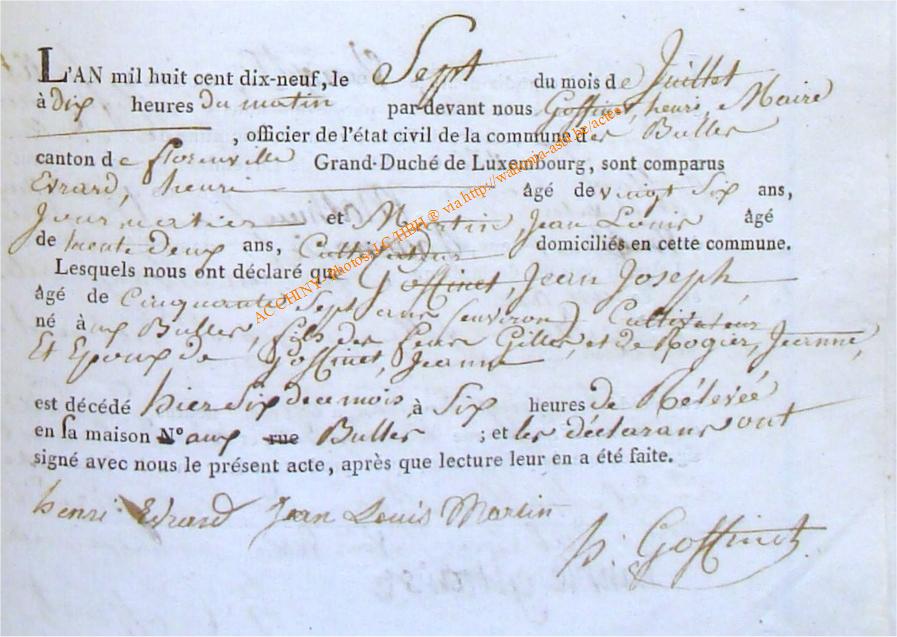 L'AN mil huit cent dix-neuf, le Sept du mois de Juillet
à dix heures du matin par-devant nous Goffinet, henri, Maire
, officier de l'état civil de la commune des Bulles
canton de florenville Grand-Duché de Luxembourg, sont comparus
Evrard, henri âgé de vingt Six ans,
Journalier et Martin Jean Louis âgé
de trente deux ans, Cultivateur domiciliés en cette commune.
Lesquels nous ont déclaré que Goffinet, Jean Joseph,
âgé de Cinquante Sept ans (environ) Cultivateur
né à aux Bulles, fils des feus Gilles, et de Rogier, Jeanne,
Et Epoux de Goffinet, Jeanne
est décédé hier Six de ce mois à Six heures de Rélevée
en sa maison N° aux rue Bulles ; et les déclarans ont
signé avec nous le présent acte, après que lecture leur en a été faite.
henri Evrard Jean Louis Martin
h. Goffinet